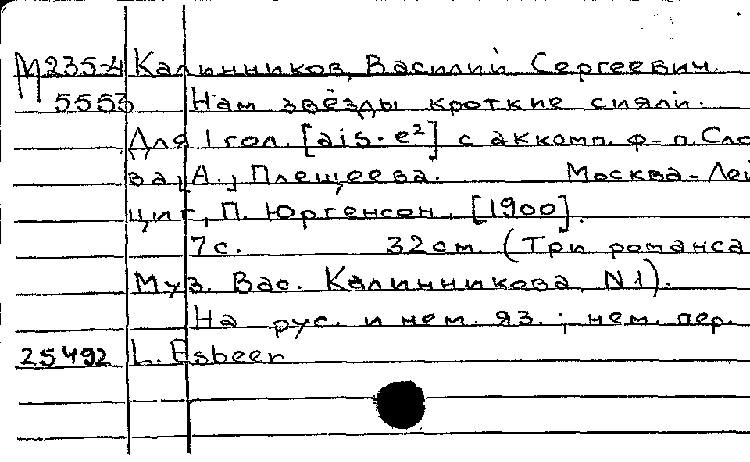 М235-4 Калинников, Василий Сергеевич.
5553 Нам звёзды кроткие сияли.
Для 1 гол. [ais-e²] с аккомп. ф-п. Сло
ва, А., Плещеева. Москва-Лей
циг, П. Юргенсон, [1900].
7с. 32 см. (Три романса
Муз. Вас. Калинникова, N1).
На рус. и нем. яз.; нем. пер.
25492 L. Esbeer